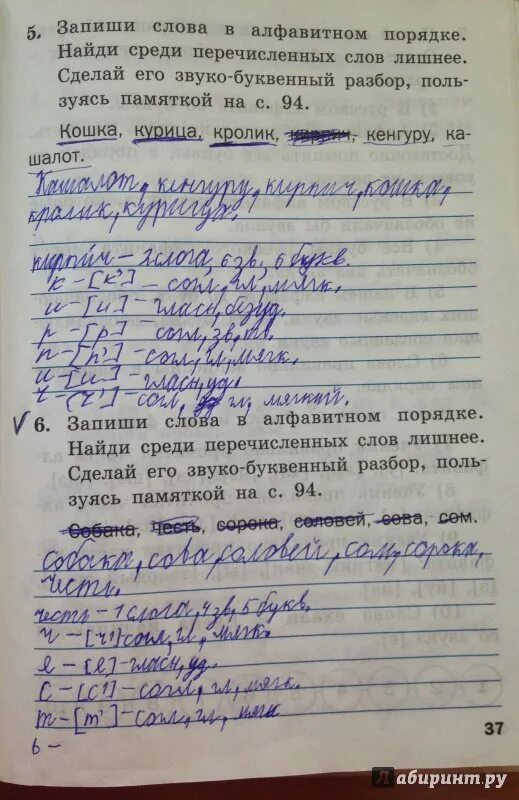 5. Запиши слова в алфавитном порядке.
Найди среди перечисленных слов лишнее.
Сделай его звуко-буквенный разбор, поль-
зуясь памяткой на с. 94.
Кошка, курица, кролик, кирпич, кенгуру, ка-
шалот.
Кашалот, кенгуру, кирпич, кошка,
кролик, курица.
кирпич – 2 слога, 6 зв, 6 букв.
к – [к'] – согл, гл, мягк.
и – [и] – гласн, безуд.
р – [р] – согл, зв, тв.
п – [п'] – согл, гл, мягк.
и – [и] – гласн, уд.
ч – [ч'] – согл, гл, мягкий.
6. Запиши слова в алфавитном порядке.
Найди среди перечисленных слов лишнее.
Сделай его звуко-буквенный разбор, поль-
зуясь памяткой на с. 94.
Собака, честь, сорока, соловей, сова, сом.
Собака, сова, соловей, сом, сорока,
честь.
честь – 1 слога, 4 зв, 5 букв.
ч – [ч'] согл, гл, мягк.
е – [е] – гласн, уд.
с – [с'] – согл, гл, мягк.
т – [т'] – согл, гл, мягк
ь –
37
Лабиринт.ру